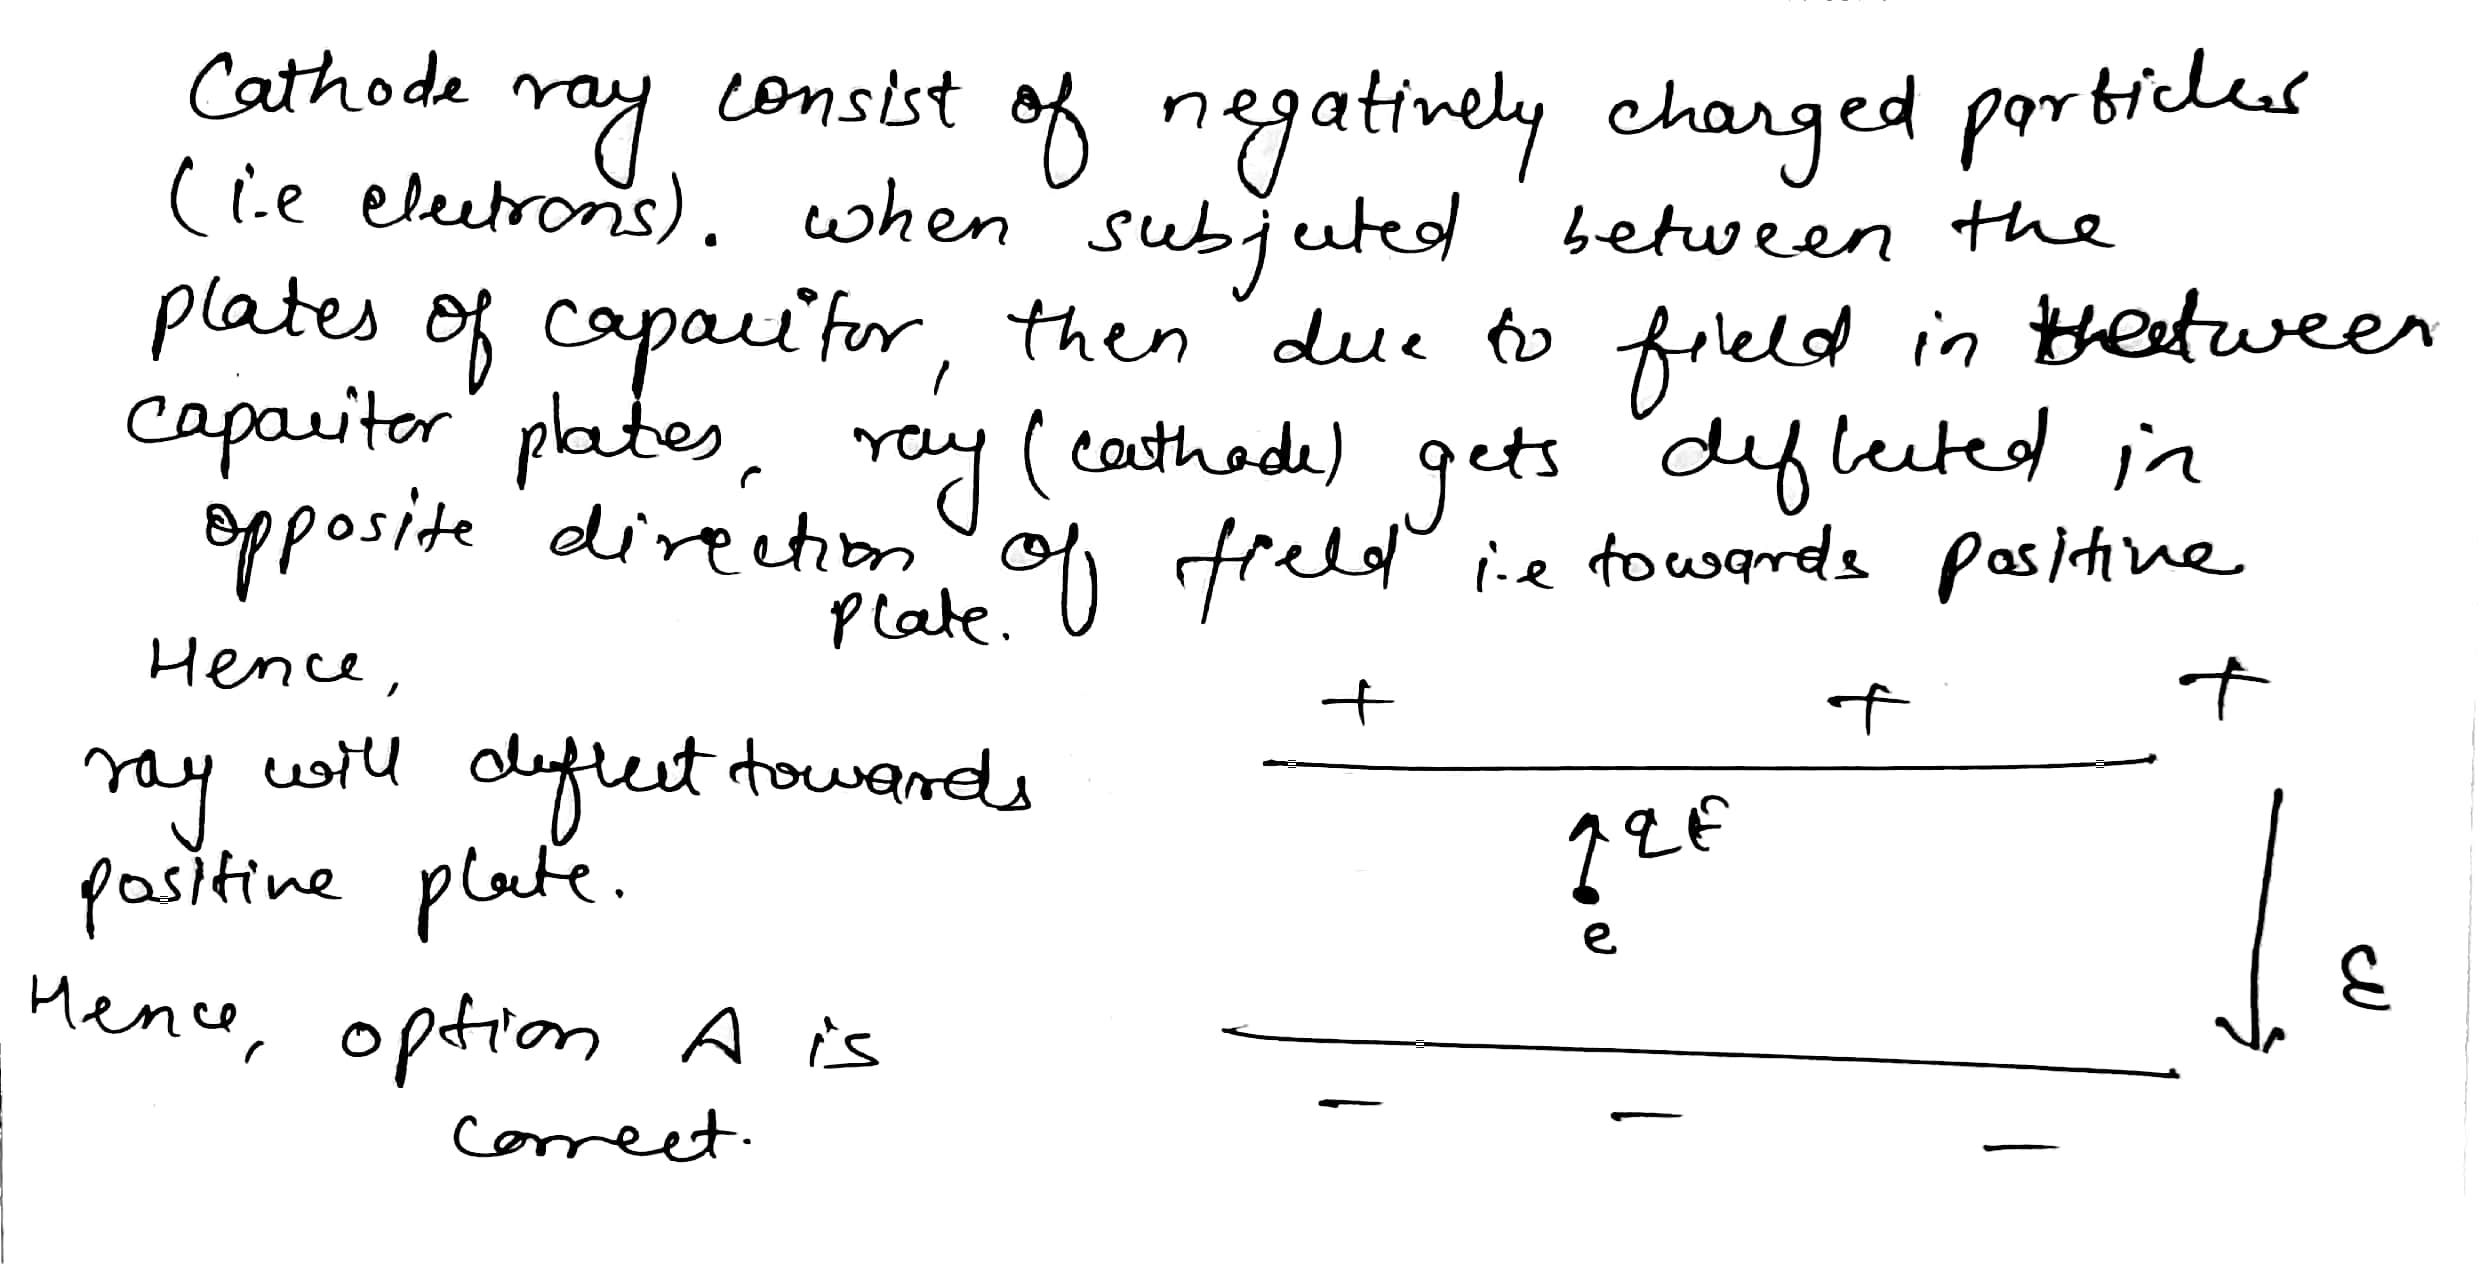 Cathode ray consist of negatively charged particles
(i.e electrons). when subjected between the
plates of capacitor, then due to field in between
capacitor plates, ray (cathode) gets deflected in
opposite direction of field i.e towards positive
plate.
Hence,
ray will deflect towards
positive plate.
Hence, option A is
correct.
+ + +
qE
e
E
- - -